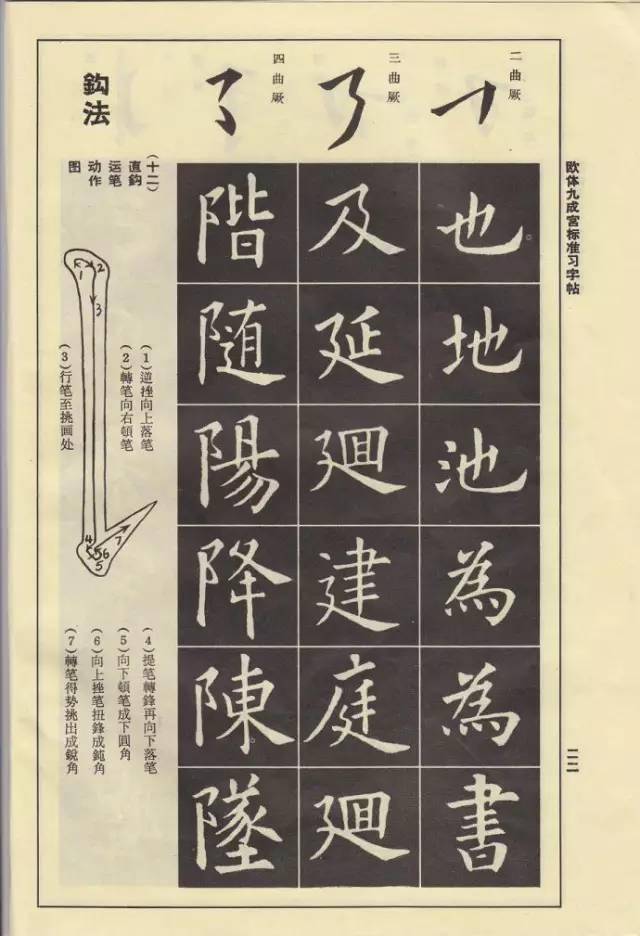 欧体九成宫标准习字帖
二二
二曲厥
三曲厥
四曲厥
也地池為為書
及延廻建庭廻
階随陽降陳墜
鈎法
(十二)
直鈎
运笔
动作
图
1
2
3
4
5
5
6
7
(1)逆挫向上落笔
(2)轉笔向右頓笔
(3)行笔至挑画处
(4)提笔轉鋒再向下落笔
(5)向下頓笔成下圓角
(6)向上挫笔扭鋒成鈍角
(7)轉笔得势挑出成銳角